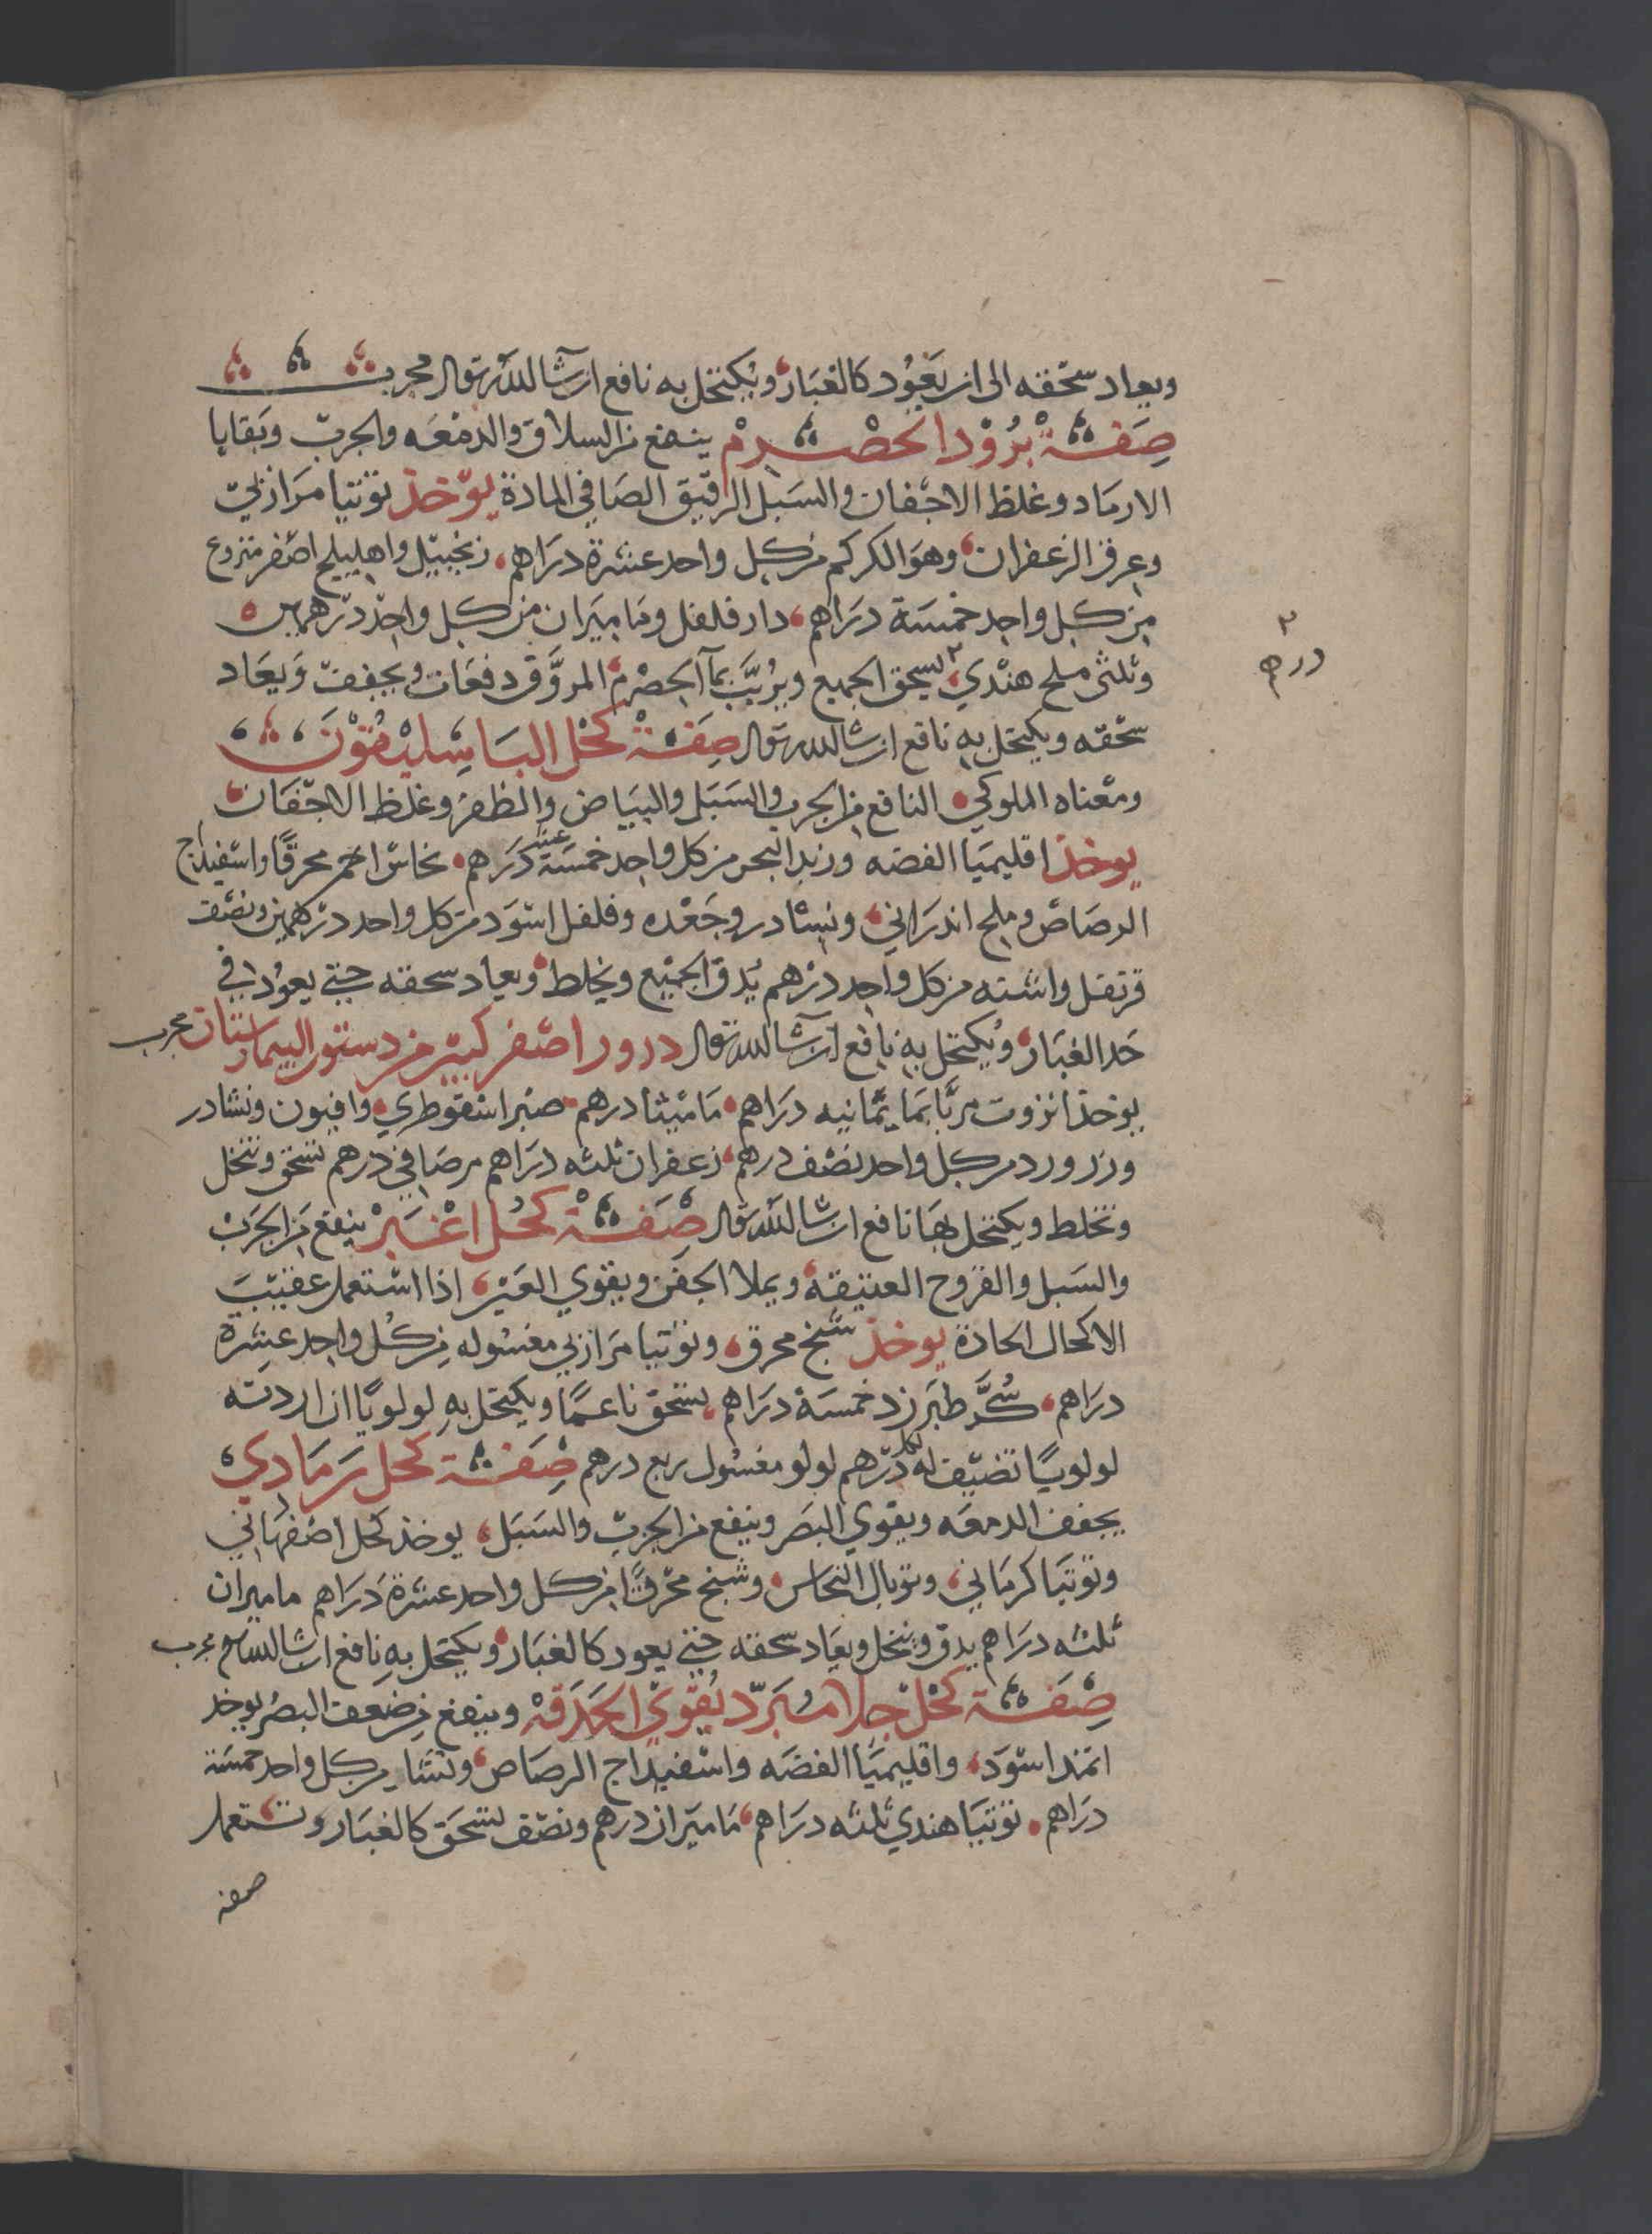 ويعاد سحقه الى ان يعود كالغبار ويكتحل به نافع ان شا الله تعالى مجرب
صفة برود الحصرم ينفع من السلاق والدمعه والجرب وبقايا
الارماد وغلظ الاجفان والسبل الرقيق الصافي المادة يوخذ توتيا مرازبي
وعرق الزعفران وهو الكركم من كل واحد عشرة دراهم زنجبيل واهليلج اصفر منزوع
من كل واحد خمسة دراهم دار فلفل وماميران من كل واحد درهمين
وثلثى ملح هندي ٢ يسحق الجميع ويربب بما الحصرم المروق دفعات ويجفف ويعاد
٢
درهم
سحقه ويكتحل به نافع ان شا الله تعالى صفة كحل الباسليقون
ومعناه الملوكي النافع من الجرب والسبل والبياض والظفر وغلظ الاجفان
يوخذ اقليميا الفضه وزبد البحر من كل واحد خمسة عشر درهم نحاس احمر محرقا واسفيداج
الرصاص وملح اندراني ونشادر وجعده وفلفل اسود من كل واحد درهمين ونصف
قرنفل واشنه من كل واحد درهم يدق الجميع ويخلط ويعاد سحقه حتي يعود في
حد الغبار ويكتحل به نافع ان شا الله تعالى درور اصفر كبير من دستور البيمارستان مجرب
يوخذ انزروت مربا بما ثمانيه دراهم ماميثا درهم صبر اسقوطري وافيون ونشادر
وزرورد من كل واحد نصف درهم زعفران ثلثه دراهم مر صافي درهم تسحق وتنخل
وتخلط ويكتحل بها نافع ان شا الله تعالى صفة كحل اغبر ينفع من الجرب
والسبل والقروح العتيقة ويملا الجفن ويقوي العين اذا استعمل عقيب
الاكحال الحادة يوخذ شنج محرق وتوتيا مرازبي مغسوله من كل واحد عشرة
دراهم سكر طبرزد خمسة دراهم يسحق ناعما ويكتحل به لولويا ان اردته
لولويا تضيف له لكل درهم لولو مغسول ربع درهم صفة كحل رمادي
يجفف الدمعه ويقوي البصر وينفع من الجرب والسبل يوخذ كحل اصفهاني
وتوتيا كرماني وتوبال النحاس وشنج محرقا من كل واحد عشرة دراهم ماميران
ثلثه دراهم يدق وينخل ويعاد سحقه حتي يعود كالغبار ويكتحل به نافع ان شا الله تع مجرب
صفة كحل جلا مبرد يقوي الحدقة وينفع من ضعف البصر يوخذ
اثمد اسود واقليميا الفضه واسفيداج الرصاص ونشا من كل واحد خمسة
دراهم توتيا هندي ثلثه دراهم ماميران درهم ونصف تسحق كالغبار وتستعمل
صفة